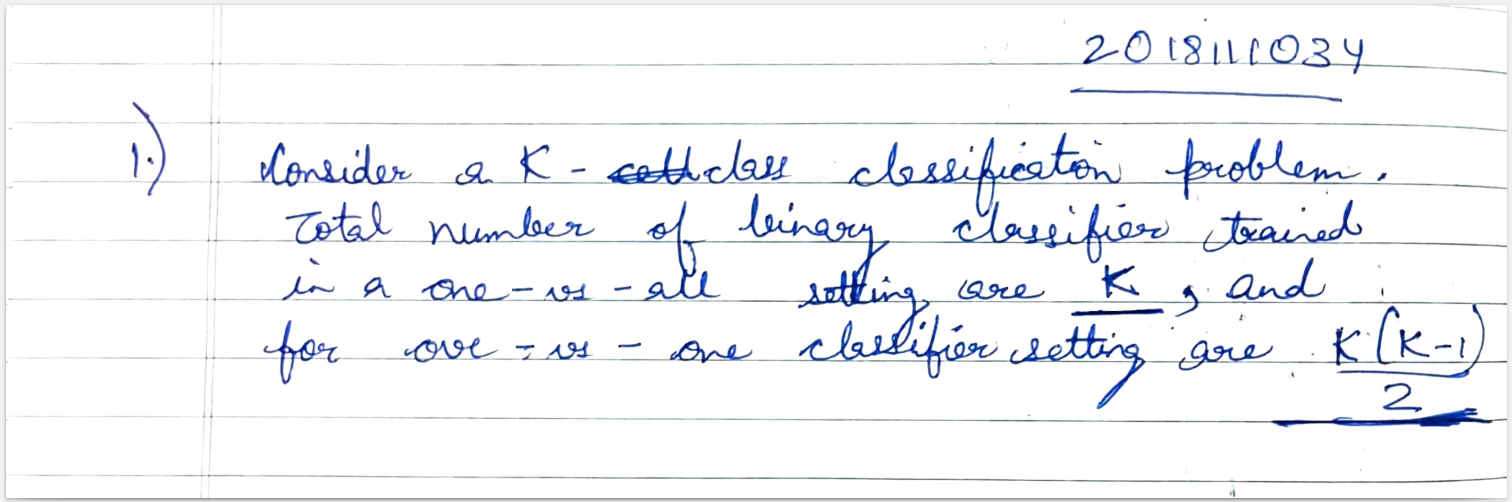 2018111034
1.) Consider a K - class classification problem.
Total number of binary classifier trained
in a one-vs-all setting are K, and
for ove-vs-one classifier setting are K(K-1)/2